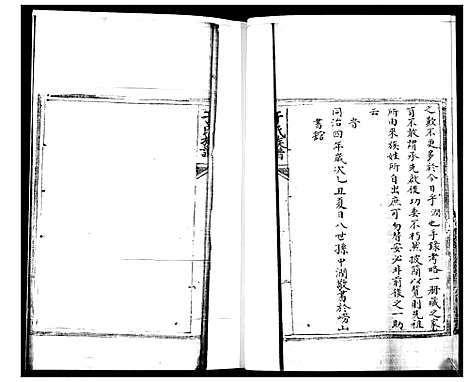 之歎不更多於今日乎潤也手錄考略一冊藏之家
萬不敢謂承先啟後功委不朽然披簡以覽則先祖
所由來族姓所自出庶可勿替安必非前後之一助
云
旹
同治四年歲次乙丑夏日八世孫中潤敬書於嶗山
書館
于氏族譜
于氏族譜